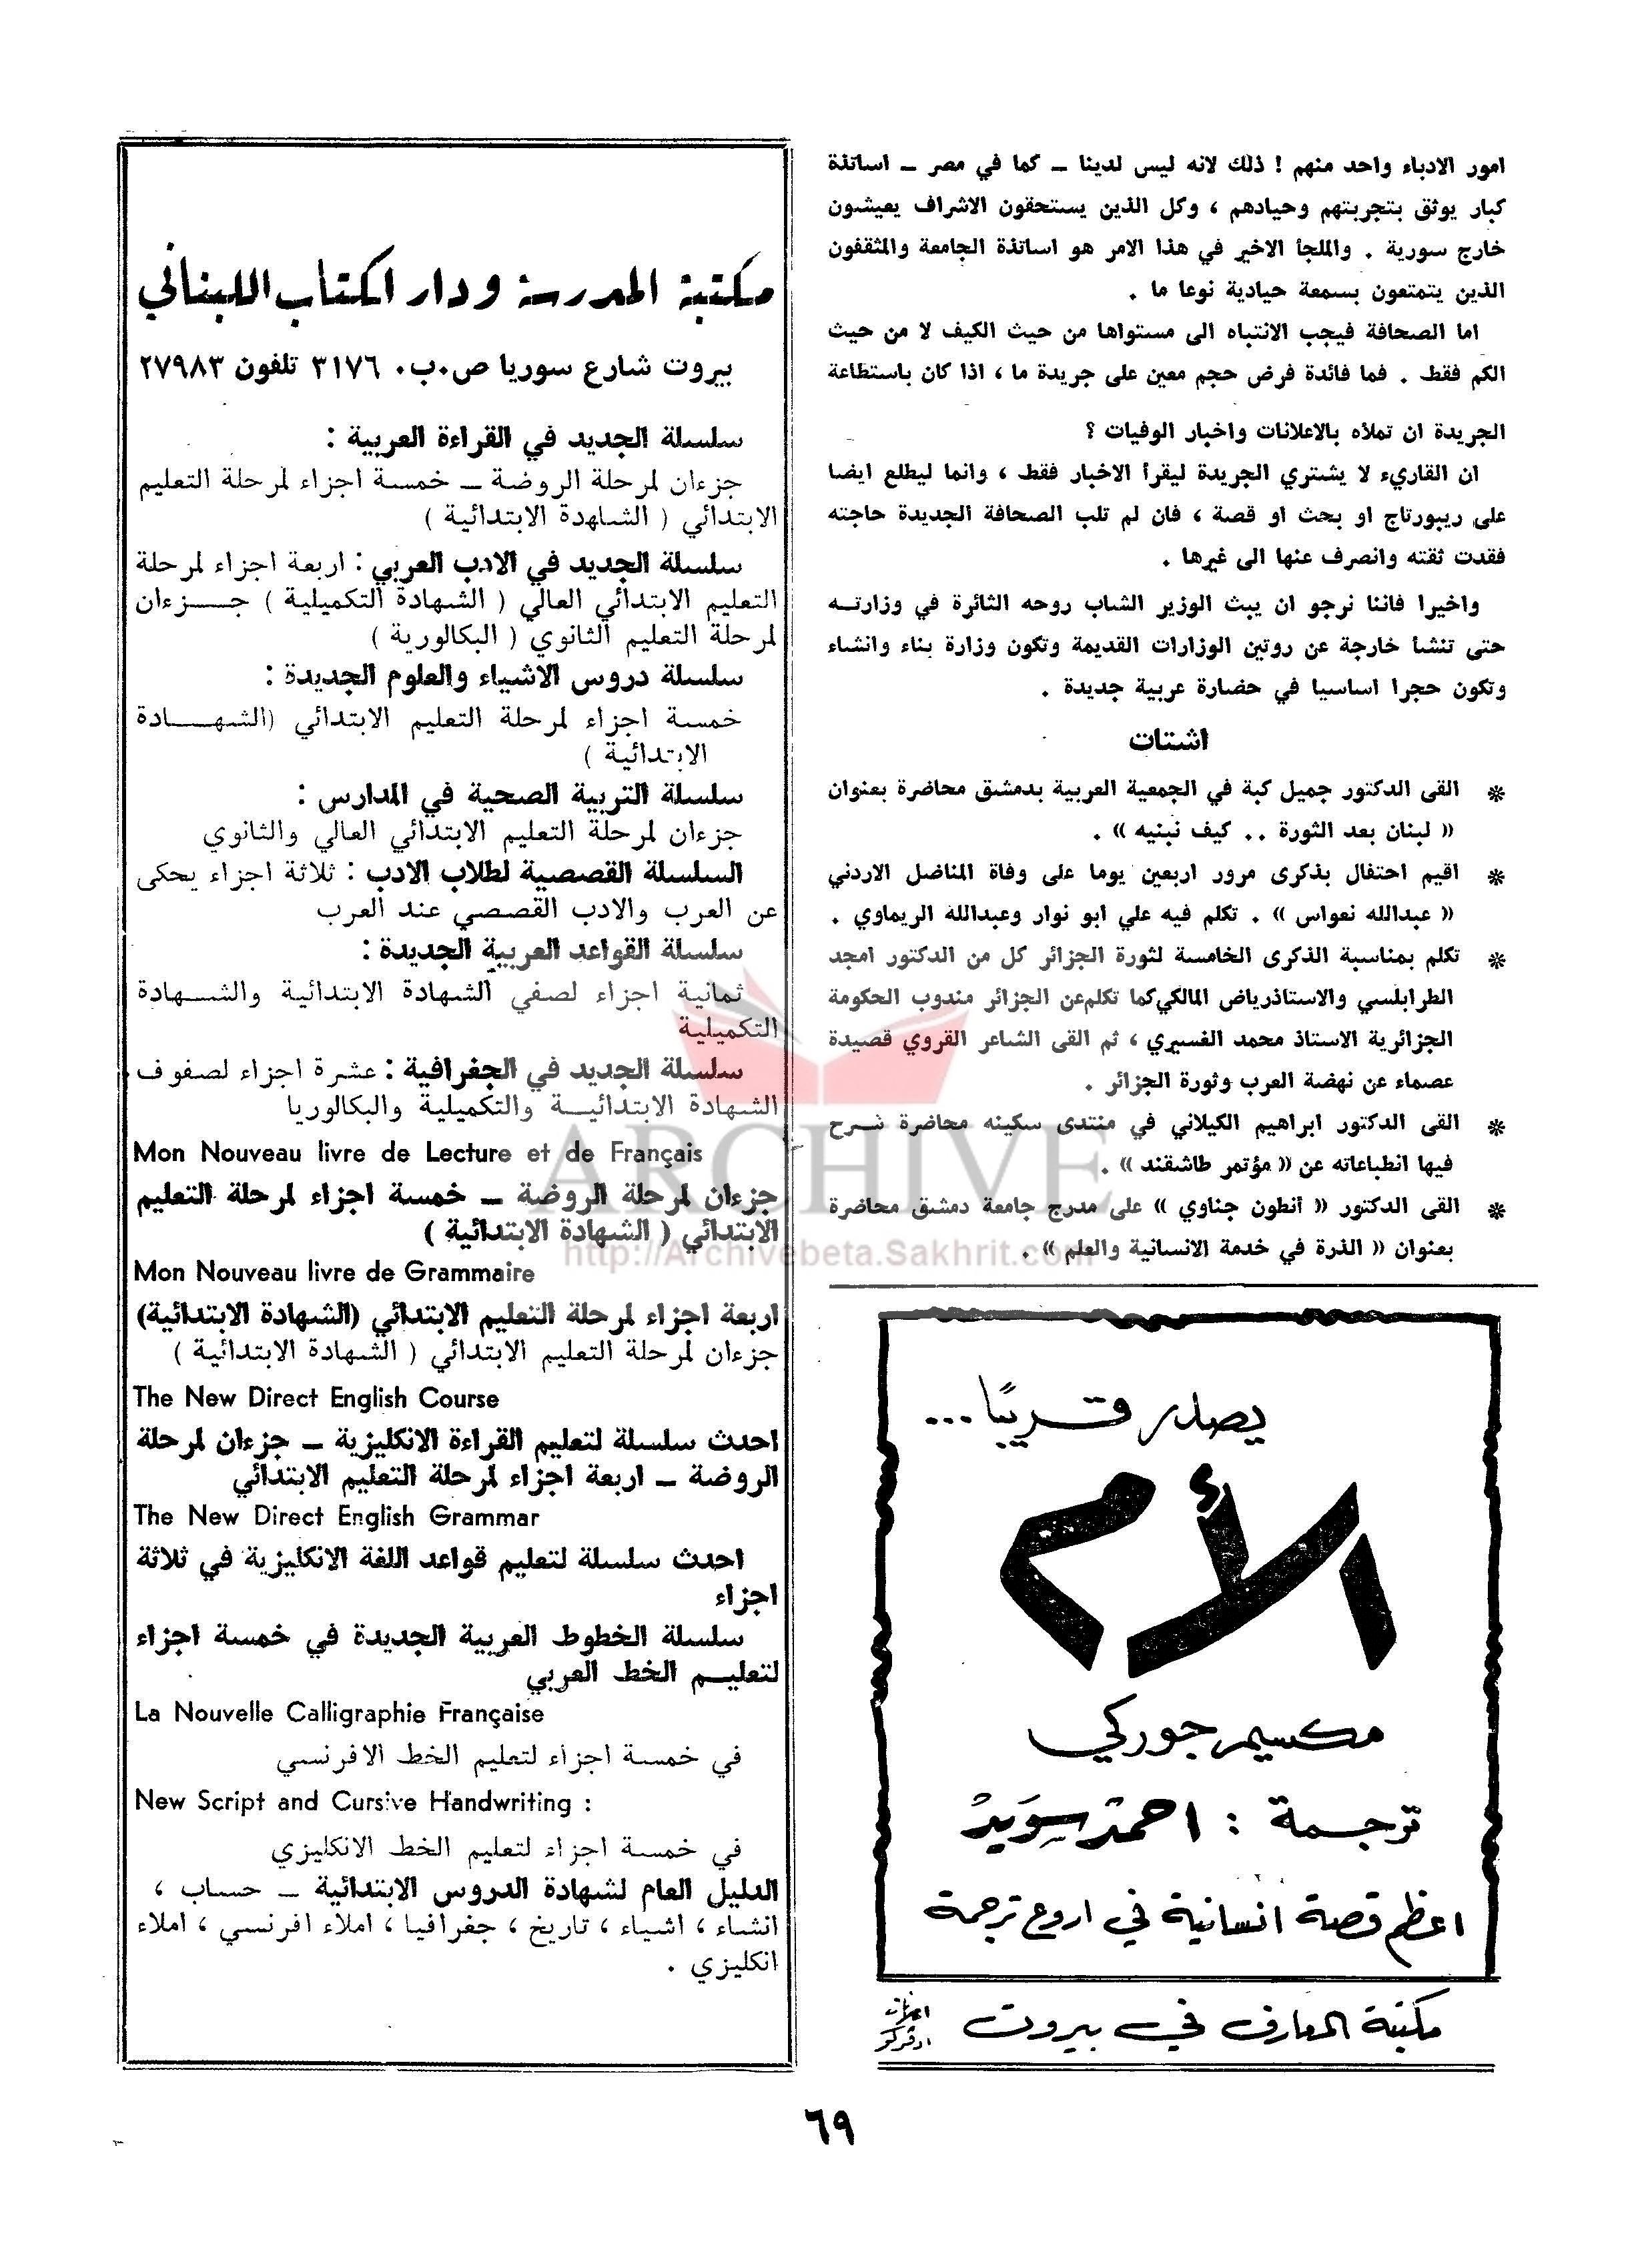 امور الادباء واحد منهم ! ذلك لانه ليس لدينا ــ كما في مصر ــ اساتذة
كبار يوثق بتجربتهم وحيادهم ، وكل الذين يستحقون الاشراف يعيشون
خارج سورية . والملجأ الاخير في هذا الامر هو اساتذة الجامعة والمثقفون
الذين يتمتعون بسمعة حيادية نوعا ما .
اما الصحافة فيجب الانتباه الى مستواها من حيث الكيف لا من حيث
الكم فقط . فما فائدة فرض حجم معين على جريدة ما ، اذا كان باستطاعة
الجريدة ان تملأه بالاعلانات واخبار الوفيات ؟
ان القاريء لا يشتري الجريدة ليقرأ الاخبار فقط ، وانما ليطلع ايضا
على ريبورتاج او بحث او قصة ، فان لم تلب الصحافة الجديدة حاجته
فقدت ثقته وانصرف عنها الى غيرها .
واخيرا فاننا نرجو ان يبث الوزير الشاب روحه الثائرة في وزارتـه
حتى تنشأ خارجة عن روتين الوزارات القديمة وتكون وزارة بناء وانشاء
وتكون حجرا اساسيا في حضارة عربية جديدة .
اشتات
* القى الدكتور جميل كبة في الجمعية العربية بدمشق محاضرة بعنوان
« لبنان بعد الثورة .. كيف نبنيه » .
* اقيم احتفال بذكرى مرور اربعين يوما على وفاة المناضل الاردني
« عبدالله نعواس » . تكلم فيه علي ابو نوار وعبدالله الريماوي .
* تكلم بمناسبة الذكرى الخامسة لثورة الجزائر كل من الدكتور امجد
الطرابلسي والاستاذرياض المالكي كما تكلم عن الجزائر مندوب الحكومة
الجزائرية الاستاذ محمد الغسيري ، ثم القى الشاعر القروي قصيدة
عصماء عن نهضة العرب وثورة الجزائر .
* القى الدكتور ابراهيم الكيلاني في منتدى سكينه محاضرة شـرح
فيها انطباعاته عن « مؤتمر طاشقند » .
* القى الدكتور « أنطون جناوي » على مدرج جامعة دمشق محاضرة
بعنوان « الذرة في خدمة الانسانية والعلم » .
يصدر قريبًا ...
الأم
مكسيم جوركي
ترجمة : احمد سويد
اعظم قصة انسانية في اروع ترجمة
مكتبة المعارف في بيروت
مكتبة المدرسة ودار الكتاب اللبناني
بيروت شارع سوريا ص.ب. ٣١٧٦ تلفون ٢٧٩٨٣
سلسلة الجديد في القراءة العربية :
جزءان لمرحلة الروضة ــ خمسة اجزاء لمرحلة التعليم
الابتدائي ( الشاهدة الابتدائية )
سلسلة الجديد في الادب العربي : اربعة اجزاء لمرحلة
التعليم الابتدائي العالي ( الشهادة التكميلية ) جـــزءان
لمرحلة التعليم الثانوي ( البكالورية )
سلسلة دروس الاشياء والعلوم الجديدة :
خمسة اجزاء لمرحلة التعليم الابتدائي (الشهــــادة
الابتدائية )
سلسلة التربية الصحية في المدارس :
جزءان لمرحلة التعليم الابتدائي العالي والثانوي
السلسلة القصصية لطلاب الادب : ثلاثة اجزاء يحكى
عن العرب والادب القصصي عند العرب
سلسلة القواعد العربية الجديدة :
ثمانية اجزاء لصفي الشهادة الابتدائية والشـــهادة
التكميلية
سلسلة الجديد في الجغرافية : عشرة اجزاء لصفوف
الشهادة الابتدائيــة والتكميلية والبكالوريا
Mon Nouveau livre de Lecture et de Français
جزءان لمرحلة الروضة ــ خمسة اجزاء لمرحلة التعليم
الابتدائي ( الشهادة الابتدائية )
Mon Nouveau livre de Grammaire
اربعة اجزاء لمرحلة التعليم الابتدائي (الشهادة الابتدائية)
جزءان لمرحلة التعليم الابتدائي ( الشهادة الابتدائية )
The New Direct English Course
احدث سلسلة لتعليم القراءة الانكليزية ــ جزءان لمرحلة
الروضة ــ اربعة اجزاء لمرحلة التعليم الابتدائي
The New Direct English Grammar
احدث سلسلة لتعليم قواعد اللغة الانكليزية في ثلاثة
اجزاء
سلسلة الخطوط العربية الجديدة في خمسة اجزاء
لتعليـم الخط العربي
La Nouvelle Calligraphie Française
في خمسة اجزاء لتعليم الخط الافرنسي
New Script and Cursive Handwriting :
في خمسة اجزاء لتعليم الخط الانكليزي
الدليل العام لشهادة الدروس الابتدائية ــ حساب ،
انشاء ، اشياء ، تاريخ ، جغرافيا ، املاء افرنسي ، املاء
انكليزي .
٦٩
ARCHIVE
http://Archivebeta.Sakhrit.com